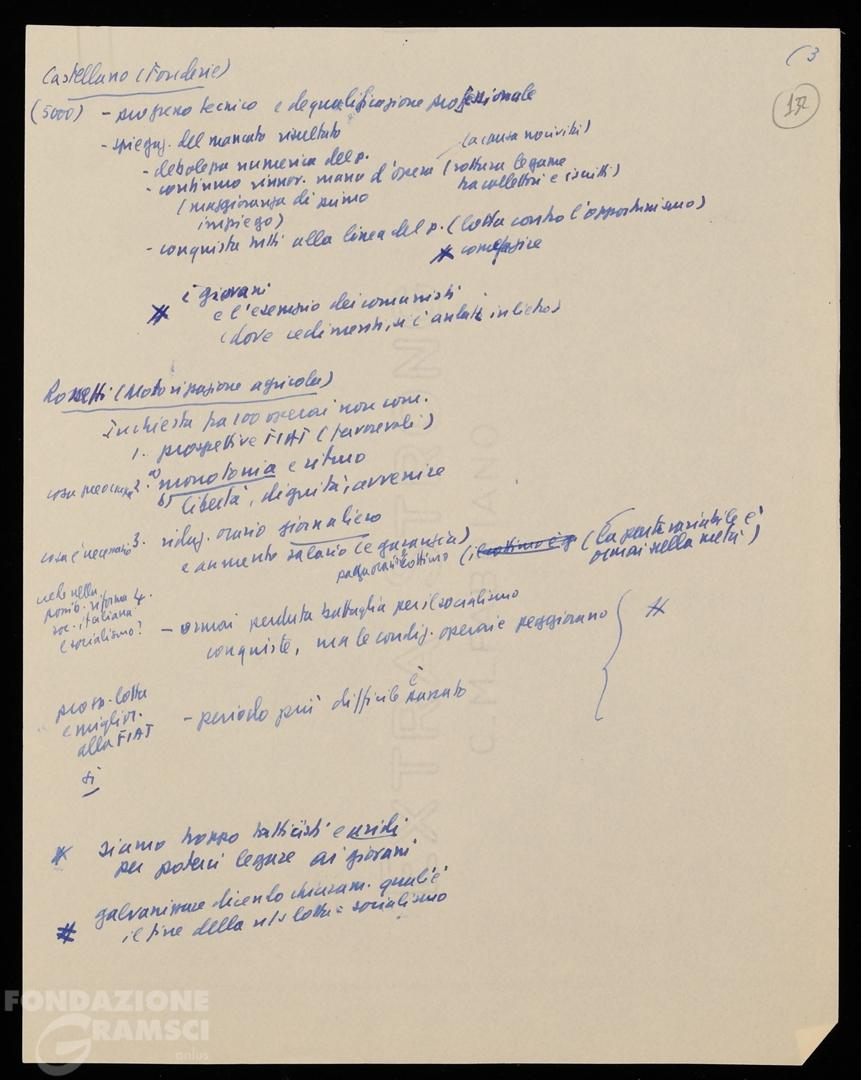 (3
172
Castellano (Fonderie)
(5000) - progresso tecnico e dequalificazione professionale
- spiegaz. del mancato risultato
- debolezza numerica del p.
(a causa nocività)
- continuo rinnov. mano d'opera (rottura legame
tra collettori e iscritti)
(maggioranza di primo
impiego)
- conquista tutti alla linea del p. (lotta contro l'opportunismo)
i giovani
e l'esempio dei comunisti
(dove cedimenti, si è andati indietro)
(Motorizzazione agricola)
Inchiesta tra 100 operai non com.
1. prospettive FIAT (favorevoli)
cosa preoccupa 2. a) monotonia e ritmo
b) libertà, dignità, avvenire
cosa è necessario 3. riduz. orario giornaliero
e aumento salario (e garanzia)
paga oraria e cottimo (il cottimo è (la parte variabile è
ormai nella metà)
nella
possib. riforma 4.
soc. italiana
e socialismo?
- ormai perduta battaglia per il socialismo
conquiste, ma le condiz. operaie peggiorano
prosp. lotta
e miglior.
alla FIAT
- periodo più difficile è passato
si
siamo troppo tatticisti e aridi
per poterci legare ai giovani
galvanizzare dicendo chiaram. qual'è
il fine della ns lotta = socialismo
EXTRA STRONG
C.M. FABRIANO
FONDAZIONE
GRAMSCI
onlus